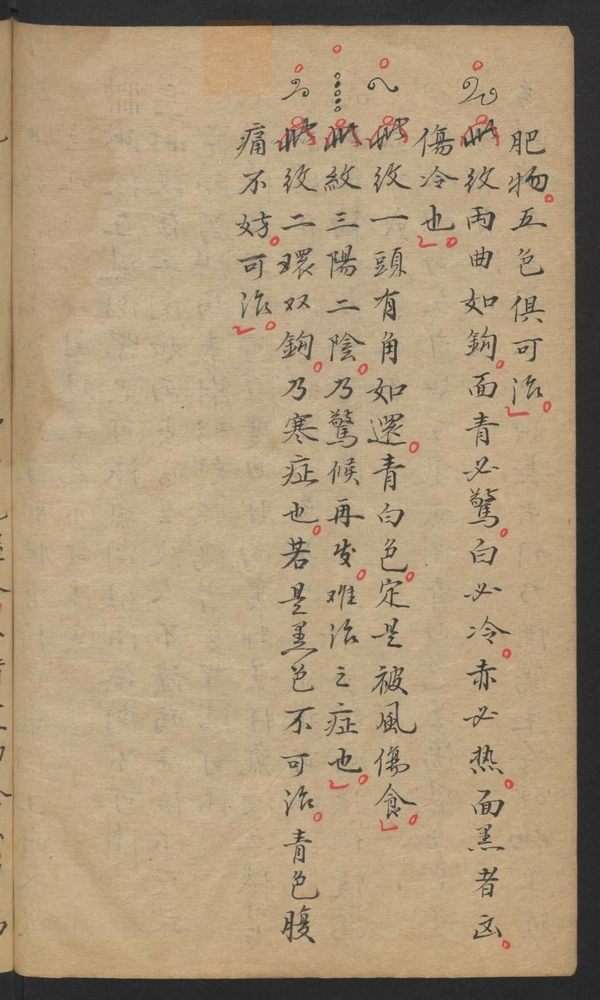 肥物。五色俱可治。
此纹两曲如鈎。面青必驚。白必冷。赤必热。面黑者凶。
傷冷也。
此纹一頭有角如還。青白色。定是被風傷食。
此紋三陽二陰。乃驚候再发。难治之症也。
此纹二環双鈎。乃寒症也。若是黑色不可治。青色腹
痛不妨。可治。